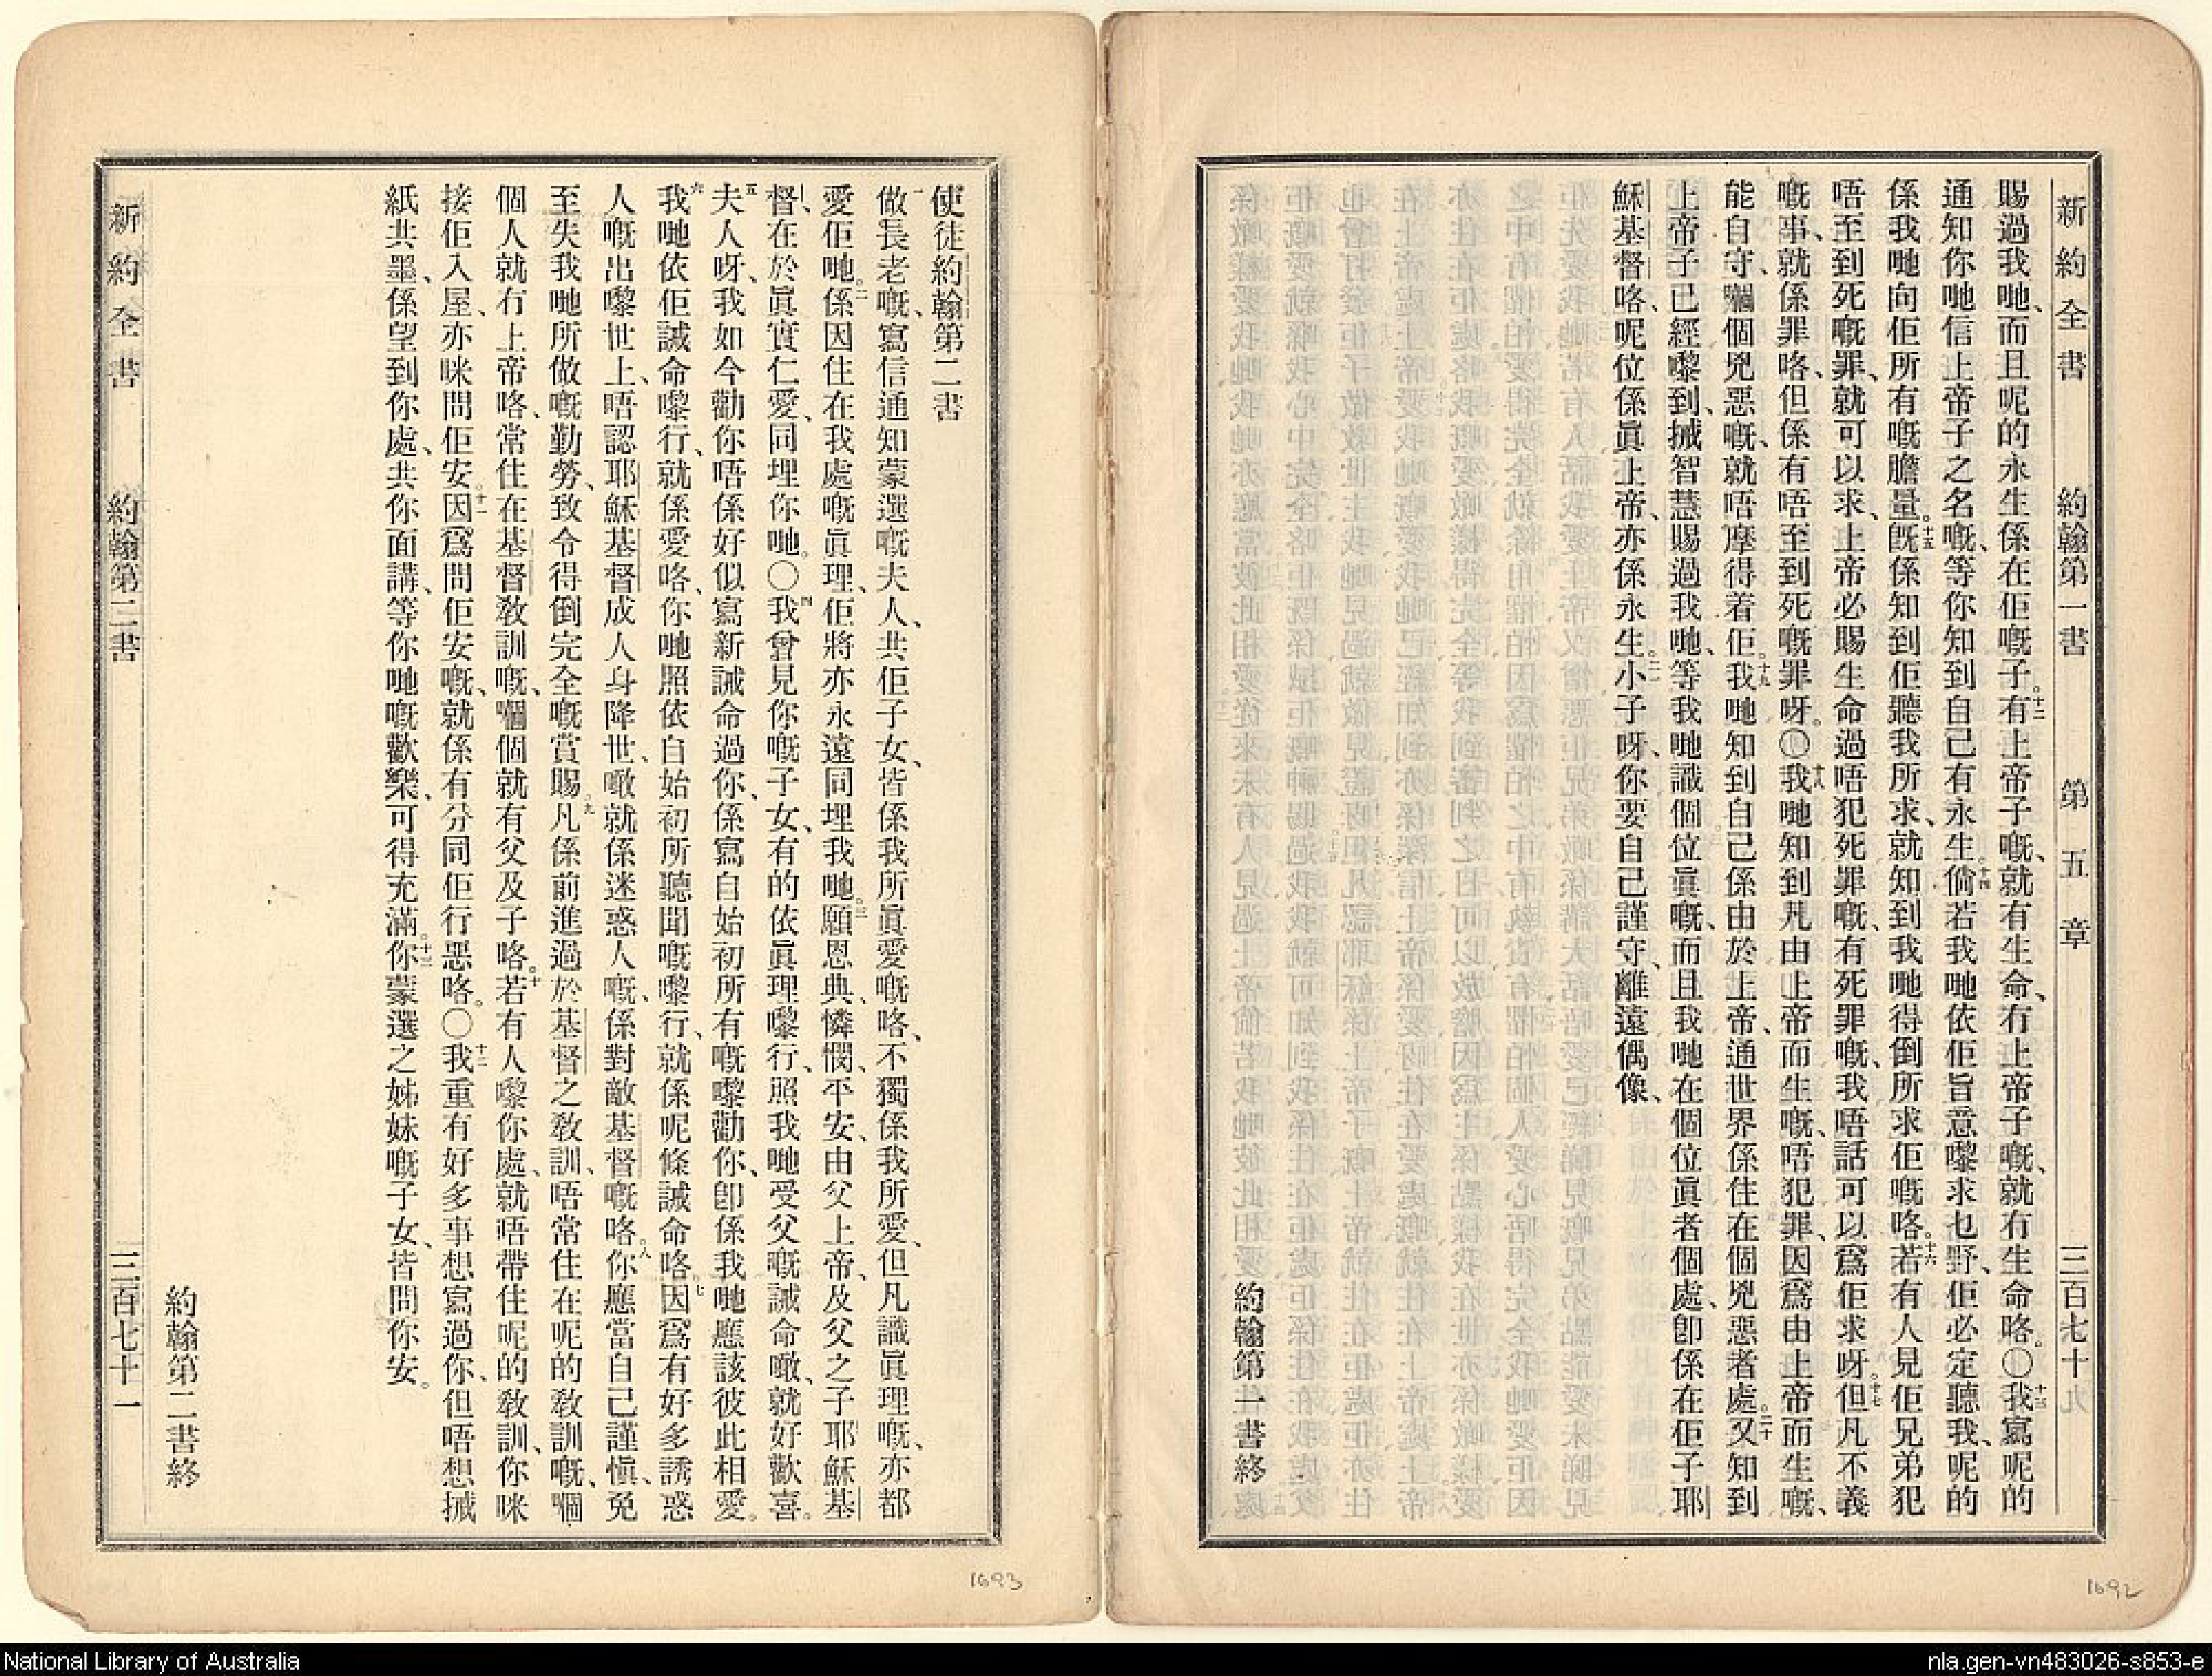 新約全書　約翰第一書　第五章　三百七十九
賜過我哋、而且呢的永生係在佢嘅子。十二有上帝子嘅、就有生命、冇上帝子嘅、就冇生命咯。〇十三我寫呢的
通知你哋信上帝子之名嘅、等你知到自己有永生。十四倘若我哋依佢旨意嚟求乜野、佢必定聽我、呢的
係我哋向佢所有嘅膽量。十五既係知到佢聽我所求、就知到我哋得倒所求佢嘅咯。十六若有人見佢兄弟犯
唔至到死嘅罪、就可以求、上帝必賜生命過唔犯死罪嘅、有死罪嘅、我唔話可以爲佢求呀。十七但凡不義
嘅事、就係罪咯、但係有唔至到死嘅罪呀。〇十八我哋知到凡由上帝而生嘅、唔犯罪、因爲由上帝而生嘅、
能自守、嗰個兇惡嘅、就唔摩得着佢。十九我哋知到自己係由於上帝、通世界係住在個兇惡者處。二十又知到
上帝子已經嚟到、搣智慧賜過我哋、等我哋識個位眞嘅、而且我哋在個位眞者個處、卽係在佢子耶
穌基督咯、呢位係眞上帝、亦係永生。二一小子呀、你要自己謹守、離遠偶像、
約翰第一書終
使徒約翰第二書
一做長老嘅、寫信通知蒙選嘅夫人、共佢子女、皆係我所眞愛嘅咯、不獨係我所愛、但凡識眞理嘅、亦都
愛佢哋。二係因住在我處嘅眞理、佢將亦永遠同埋我哋。三願恩典、憐憫、平安、由父上帝、及父之子耶穌基
督、在於眞實仁愛、同埋你哋。〇四我曾見你嘅子女、有的依眞理嚟行、照我哋受父嘅誡命噉、就好歡喜。
五夫人呀、我如今勸你唔係好似寫新誡命過你、係寫自始初所有嘅嚟勸你、卽係我哋應該彼此相愛。
六我哋依佢誡命嚟行、就係愛咯、你哋照依自始初所聽聞嘅嚟行、就係呢條誡命咯。七因爲有好多誘惑
人嘅出嚟世上、唔認耶穌基督成人身降世、噉就係迷惑人嘅、係對敵基督嘅咯。八你應當自己謹愼、免
至失我哋所做嘅勤勞、致令得倒完全嘅賞賜。九凡係前進過於基督之敎訓、唔常住在呢的敎訓嘅、嗰
個人就冇上帝咯、常住在基督敎訓嘅、嗰個就有父及子咯。十若有人嚟你處、就唔帶住呢的敎訓、你咪
接佢入屋、亦咪問佢安。十一因爲問佢安嘅、就係有分同佢行惡咯。〇十二我重有好多事想寫過你、但唔想搣
紙共墨、係望到你處、共你面講、等你哋嘅歡樂、可得充滿。十三你蒙選之姊妹嘅子女、皆問你安。
約翰第二書終
新約全書　約翰第二書　三百七十一
1693
1692
National Library of Australia
nla.gen-vn483026-s853-e